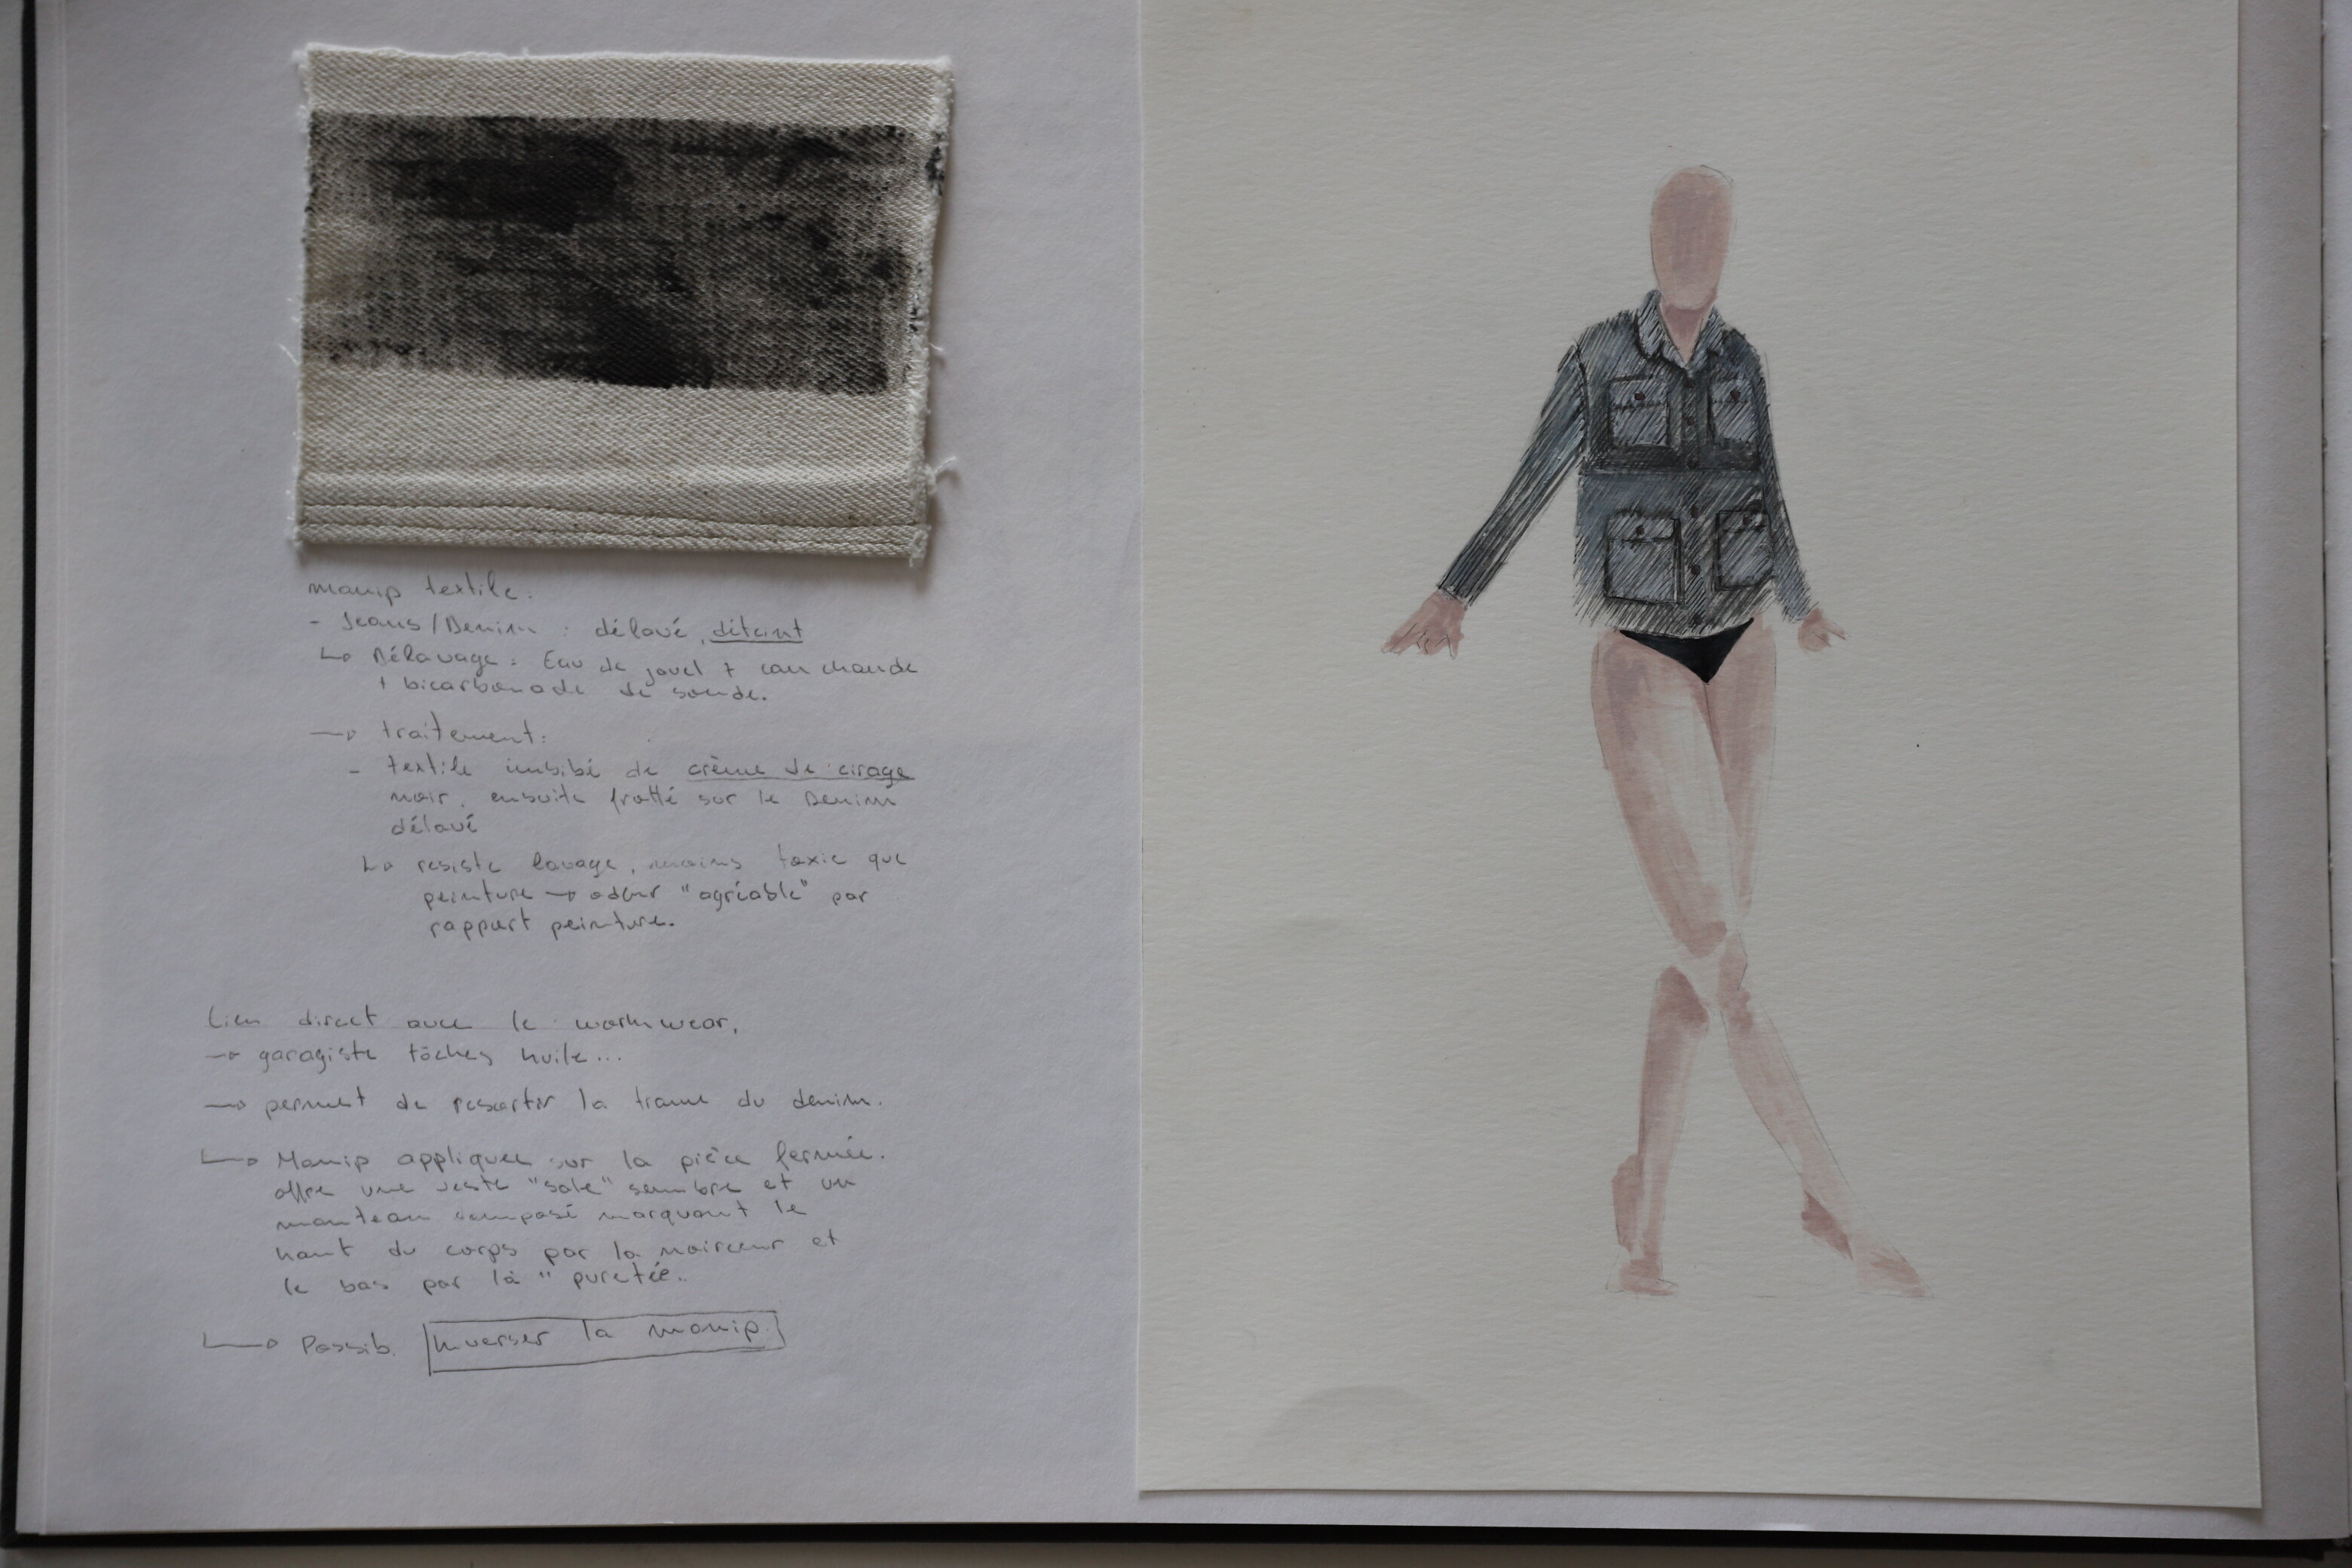 manip textile.
- Jeans/Denim : délavé, déteint
↳ Délavage : Eau de javel + eau chaude
+ bicarbonade de soude.
→ traitement:
- textile imbibé de crème de cirage
noir, ensuite frotté sur le Denim
délavé
↳ resiste lavage, moins toxic que
peinture → odeur "agréable" par
rapport peinture.
Lien direct avec le workwear,
→ garagiste tâches huile...
→ permet de ressortir la trame du denim.
↳ Manip appliquée sur la pièce fermée.
offre une veste "sale" sombre et un
manteau composé marquant le
haut du corps par la noirceur et
le bas par la " puretée.
↳ Possib. Inverser la manip.